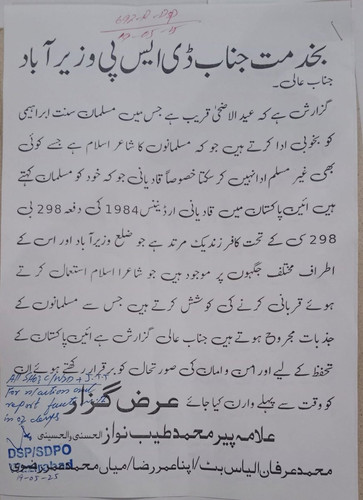 692-R-DSP
19-05-25
بخدمت جناب ڈی ایس پی وزیر آباد
جناب عالی۔
گزارش ہے کہ عید الاضحیٰ قریب ہے جس میں مسلمان سنت ابراہیمی
کو بخوبی ادا کرتے ہیں جو کہ مسلمانوں کا شاعر اسلام ہے جسے کوئی
بھی غیر مسلم ادا نہیں کر سکتا خصوصاً قادیانی جو کہ خود کو مسلمان کہتے
ہیں آئین پاکستان میں قادیانی ارڈیننس 1984 کی دفعہ 298 بی
298 سی کے تحت کافر زندیک مرتد ہے جو ضلع وزیر آباد اور اس کے
اطراف مختلف جگہوں پر موجود ہیں جو شاعرا اسلام استعمال کرتے
ہوئے قربانی کرنے کی کوشش کرتے ہیں جس سے مسلمانوں کے
جذبات مجروح ہوتے ہیں جناب عالی گزارش ہے آئین پاکستان کے
تحفظ کے لیے اور اس و امان کی صورتحال کو برقرار رکھتے ہوئے ان
کو وقت سے پہلے وارن کیا جائے
عرض گزار
علامہ پیر محمد طیب نواز الحسنی والحسینی
محمد عرفان الیاس بٹ / اپنا عمر رضا / میاں محمد احمد رضوی
All SHOs C/WZD +
For n/action and
report facts with
in 02 days
DSP/SDPO
19-05-25